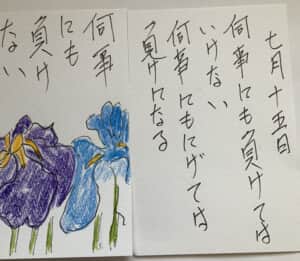 七月十五日
何事にも負けては
いけない
何事にもにげては
負けになる
何事
にも
負け
ない